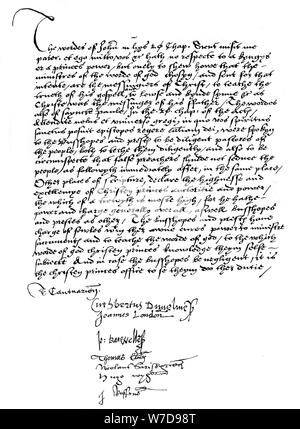 The wordes of John in his 20 chap. Sicut misit me
pater, et ego mitto vos &c. hath no respecte to a kynges
or a princes power, but only to shew howe that the
ministres of the word of god chosen, and sent for that
intente, are the messyngers of Christ, to teache the
trueth of his gospell, to loose and bynde synne &c as
Christe was the messinger of his father. The wordes
also of saynte paule, in the 20 chap. of the Actes,
Attendite vobis et universo gregi in quo vos spiritus
sanctus posuit episcopos regere ecclesiam dei, were spoken
to the bysshopes and prestes to be diligent pastores of
the people, both to teche them diligently, and also to be
circumspecte that false preachers shuld not seduce the
people, as followeth immediately after, in the same place,
Other places of scripture, declare the highnesse and
excellencye of christen princes auctoritie and power,
the which of a trueth is moste high, for he hathe
power and charge generally over all, aswell bysshopes
and prestes as other, The bysshopes and prestes have
charge of sowles within their awne cures, power to ministre
sacramentes and to teache the worde of god, to the which
word of god christen princes knowledge them selfe
subiecte, and in case the bysshopes be negligent, it is
the christen princes office to se them do their dutie,
T. Cantuarien.
Cuthbertus Dunelmens
Joannes London
Jo: batwellen
Thomas Elien
Nicolaus Sarisburien
Hugo wygorn
J. Roffens
alamy
Image ID: W7D98T
www.alamy.com